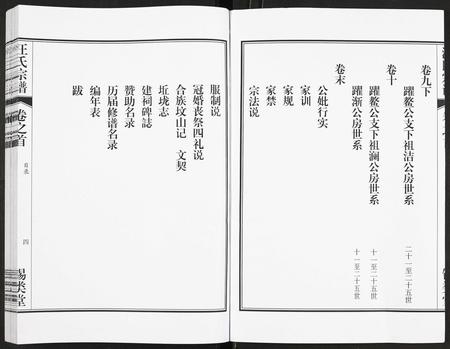 卷九下
躍鰲公支下祖洁公房世系 二十一至二十五世
卷十
躍鰲公支下祖澜公房世系 十一至二十五世
躍渐公房世系 十一至二十五世
卷末
公妣行实
家训
家规
家禁
宗法说
服制说
冠婚丧祭四礼说
合族坟山记 文契
坵垅志
建祠碑誌
赞助名录
历届修谱名录
编年表
跋
汪氏宗谱
卷之首
目录
四
锡类堂